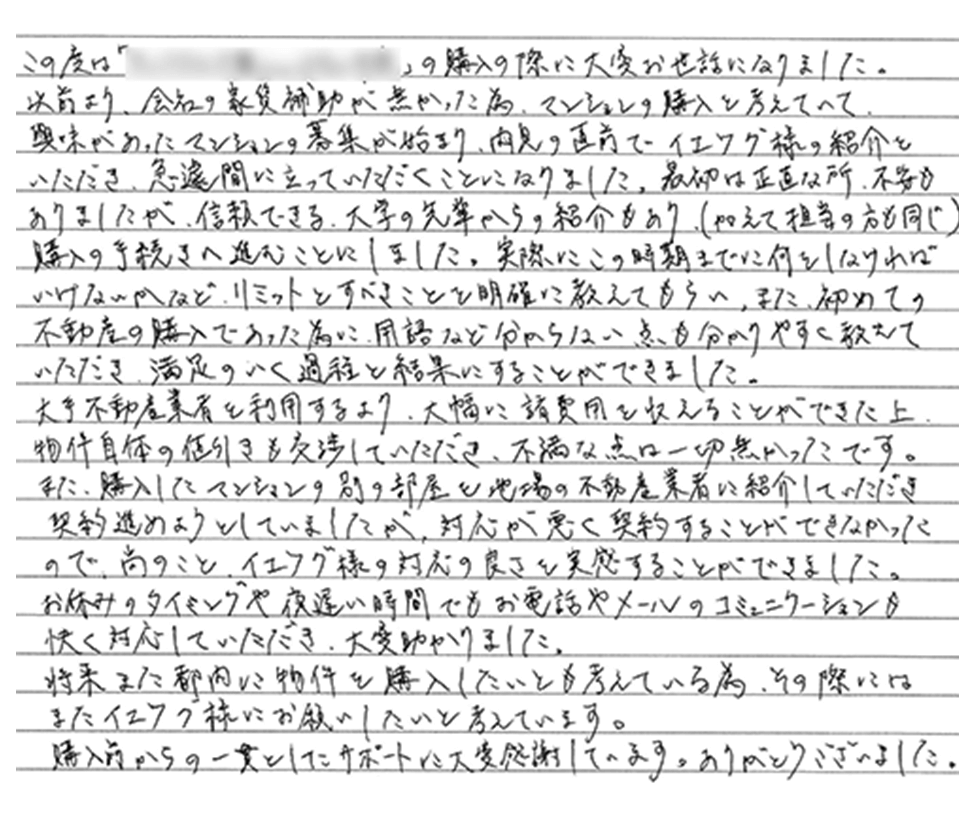 この度は「」の購入の際に大変お世話になりました。
以前より、会社の家賃補助が無かった為、マンションの購入を考えていて、
興味があったマンションの募集が始まり、内見の直前で、イエツグ様の紹介を
いただき、急遽、間に立っていただくことになりました。最初は正直な所、不安も
ありましたが、信頼できる、大学の先輩からの紹介もあり、(加えて担当の方も同じ)
購入の手続きへ進むことにしました。実際にこの時期までに何をしなければ
いけないかなど、リミットとすべきことを明確に教えてもらい、また、初めての
不動産の購入であった為に、用語など分からない点も分かりやすく教えて
いただき、満足のいく過程と結果にすることができました。
大手不動産業者を利用するより、大幅に諸費用を抑えることができた上、
物件自体の値引きも交渉していただき、不満な点は一切無かったです。
また、購入したマンションの別の部屋を地場の不動産業者に紹介していただき
契約進めようとしていましたが、対応が悪く契約することができなかった
ので、尚のこと、イエツグ様の対応の良さを実感することができました。
お休みのタイミングや夜遅い時間でもお電話やメールのコミュニケーションも
快く対応していただき、大変助かりました。
将来また都内に物件を購入したいとも考えている為、その際には
またイエツグ様にお願いしたいと考えています。
購入前からの一貫としたサポートに大変感謝しています。ありがとうございました。